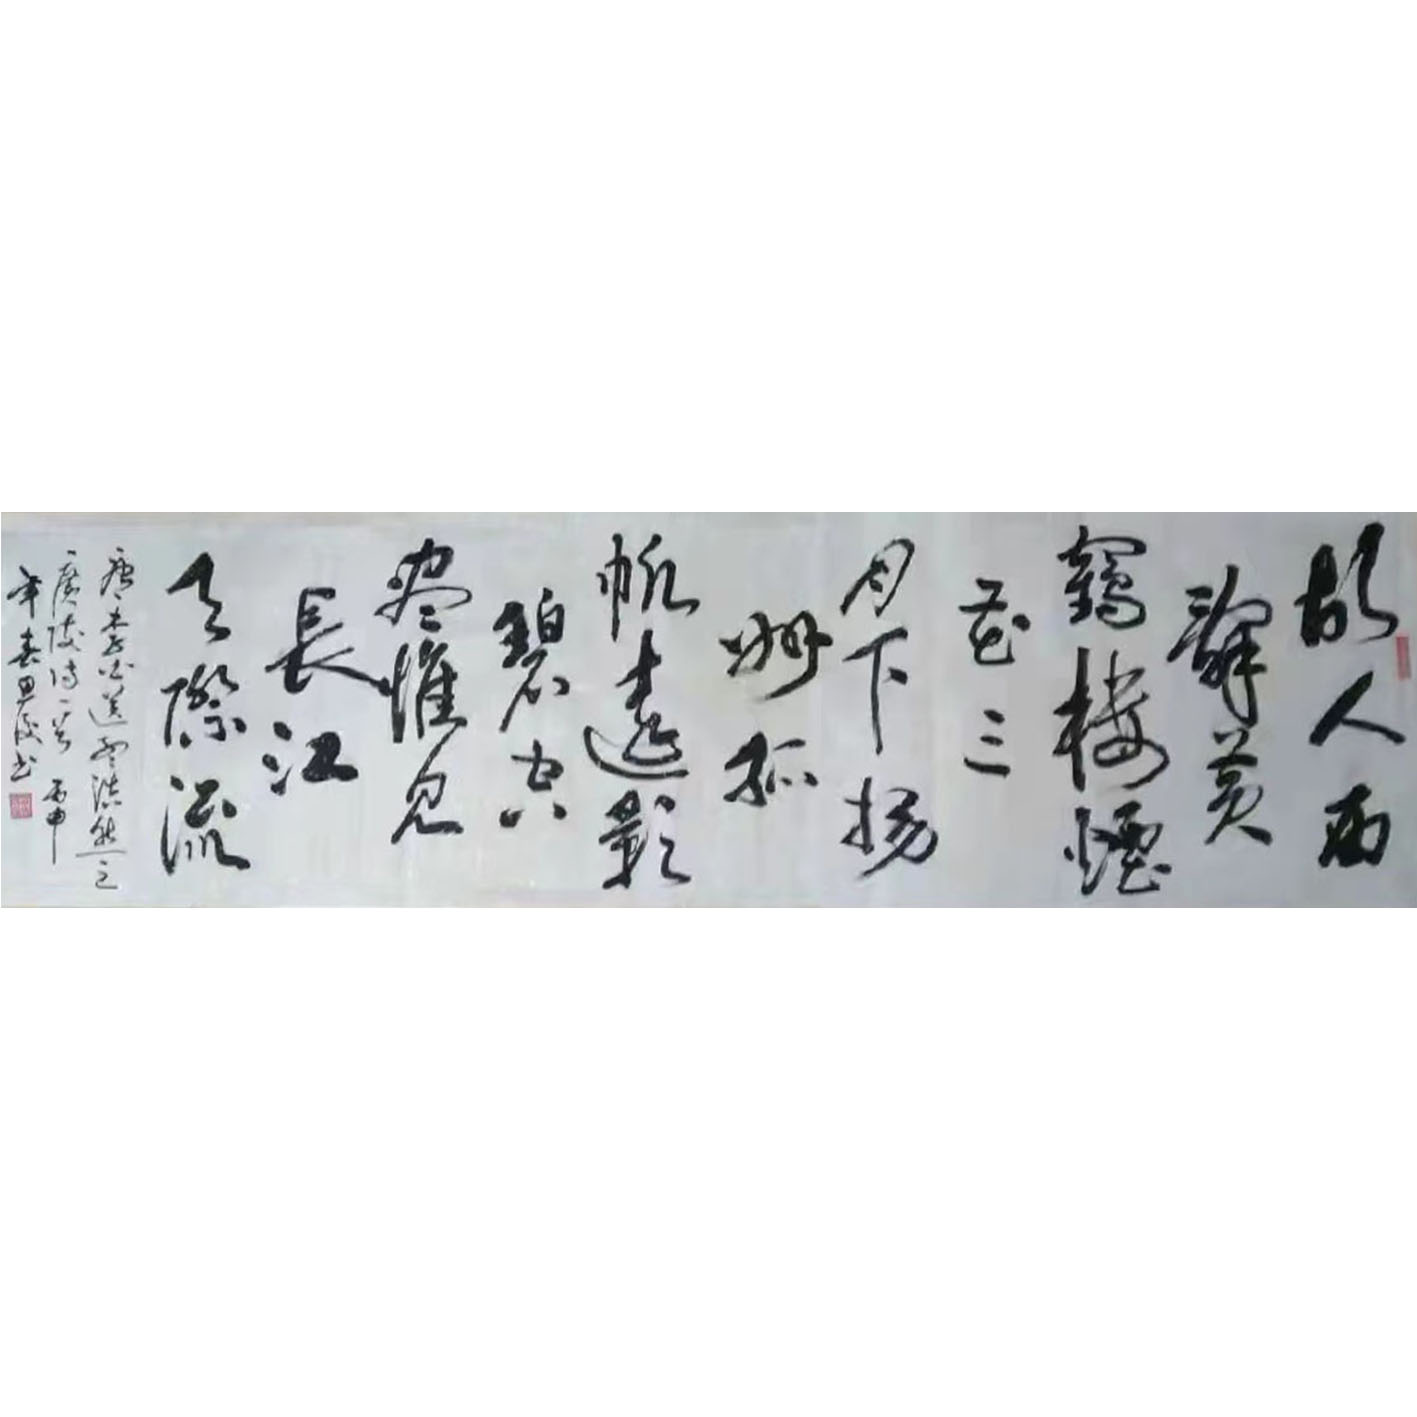 故人西
辞黄
鶴楼煙
花三
月下揚
州孤
帆遠影
碧空
尽惟見
長江
天際流
唐李白送孟浩然之
广陵诗一首 丙申
年春
书